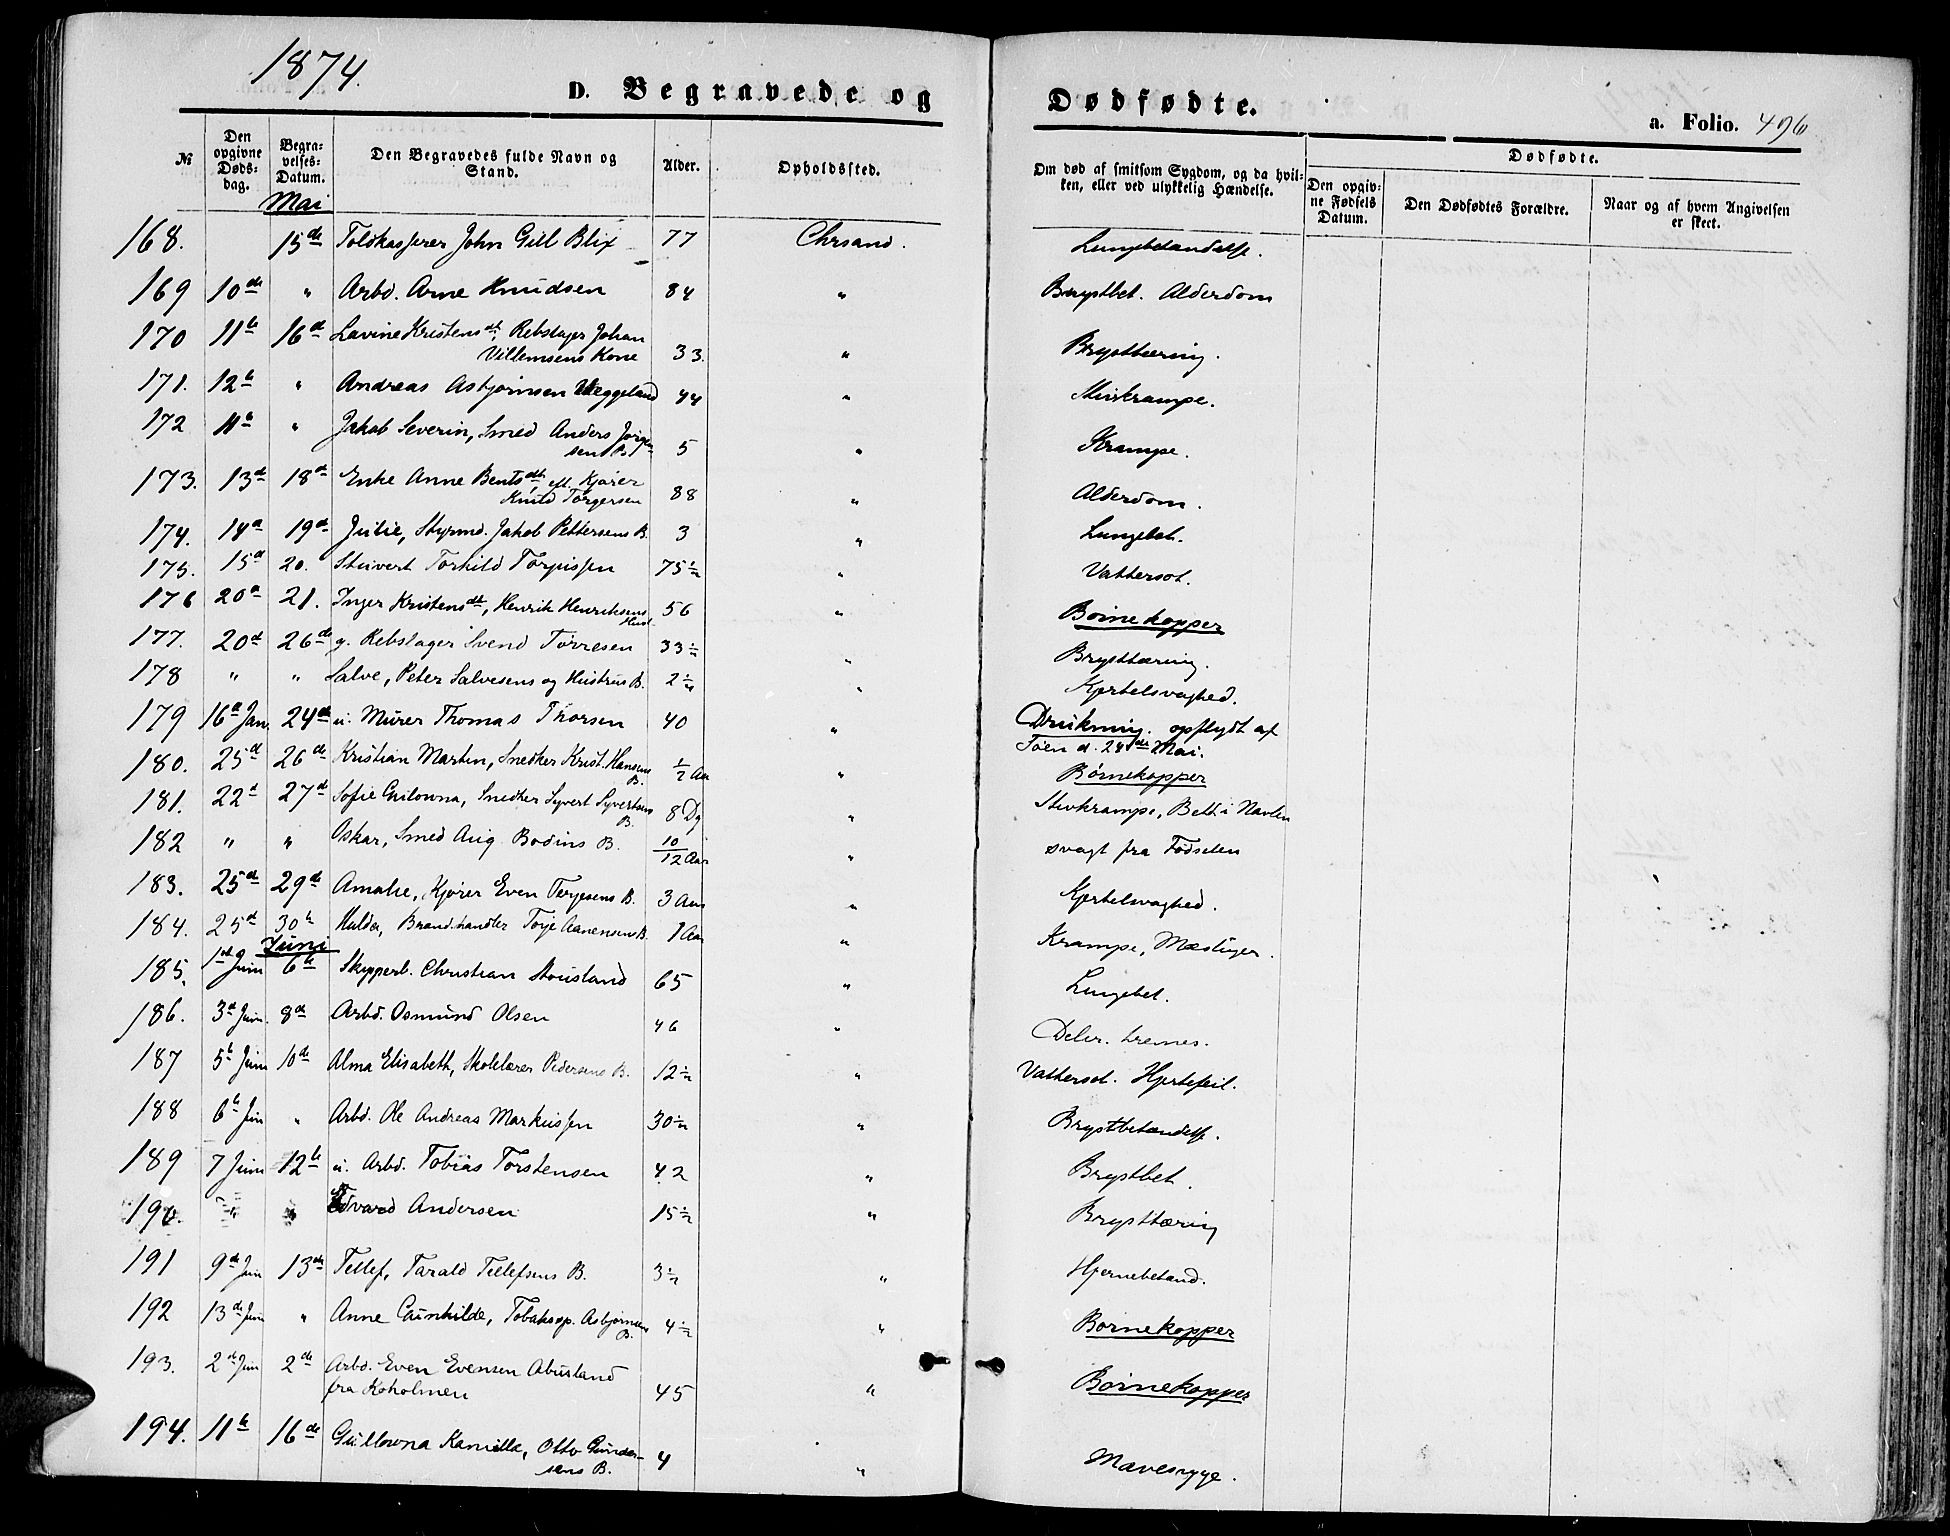 1874.
D. Begravede og Dødfødte.
a. Folio. 496
№
Den opgivne Døds-dag.
Begra-velses-Datum.
Den Begravedes fulde Navn og Stand.
Alder.
Opholdssted.
Om død af smitsom Sygdom, og da hvil-ken, eller ved ulykkelig Hændelse.
Dødfødte.
Den opgiv-ne Fødsels Datum.
Den Dødfødtes Forældre.
Naar og af hvem Angivelsen er skeet.
Mai
168. 15de Toldkasserer John Gill Blix 77 Chrsand. Lungebetændelse.
169 10de " Arbd. Arne Knudsen 84 " Brystbet. Alderdom
170 11te 16de Lavine Kristensdt, Rebslager Johan
Villemsens Kone 33. " Brysttæring.
171. 12te " Andreas Asbjørnsen Uleggeland 44 " Stivkrampe.
172 11te " Jakob Severin, Smed Anders Jørgen-
sen B. 5 " Krampe.
173. 13de 18de Enke Anne Bentsdt, eft. Kjører
Knud Torgersen 88 " Alderdom.
174. 14de 19de Julie, Styrmd. Jakob Pettersens B. 3 " Lungebet.
175. 15de 20. Stuvert Torkild Torgissen 75 1/2 " Vattersot.
176 20de 21. Inger Kristensdt, Henrik Henriksens
Hust. 56 " Børnekopper
177. 20de 26de g. Rebslager Svend Torresen 33 1/2 " Brysttæring.
178 " " Salve, Peter Salvesens og Hustrus B. 2 1/2 " Kjertelsvaghed.
179 16de Jan. 24de u. Murer Thomas Thorsen 40 " Drukning. opflydt af
Søen d. 24de Mai.
180. 25de 26de Kristian Martin, Snedker Krist. Hansens
B. 1/2 Aar " Børnekopper
181. 22de 27de Sofie Gulowna, Snedker Syvert Syvertsens
B. 8 Dg " Stivkrampe, Bett. i Navlen
182 " " Oskar, Smed Aug. Bodins B. 10/12 Aar " svagt fra Fødselen
183. 25de 29de Amalie, Kjører Even Terjesens B. 3 Aar " Kjertelsvaghed.
184. 25de 30te Hulda, Brand.handler Terje Aanensens B. 1 Aar " Krampe, Mæslinger.
Juni
185. 1ste Juni 6te Skipperb. Christian Stousland 65 " Lungebet.
186. 3de Juni. 8de Arbd. Osmund Olsen 46 " Delir. tremes.
187 5te Juni 10de Alma Elisabeth, Skolelærer Pedersens B. 12 1/2 " Vattersot. Hjertefeil.
188 6te Jun " Arbd. Ole Andreas Markussen 30 1/2 " Brystbetændelse.
189 7 Juni 12te u. Arbd. Tobias Torstensen 42 " Brystbet.
190. " " Edvard Andersen 15 1/2 " Brysttæring
191 9de Jun 13de Tellef, Tarald Tellefsens B. 3 1/2 " Hjernebetænd.
192 13de Juni " Anne Gunhilde, Tobakssp. Asbjørnsens
B. 4 1/2 " Børnekopper
193. 2de Jun 2de Arbd. Even Evensen Abusland
fra Koholmen 45 " Børnekopper
194. 11te 16de Gullowna Kamilla, Otto Gunder-
sens B. 4 " Mavesyge.